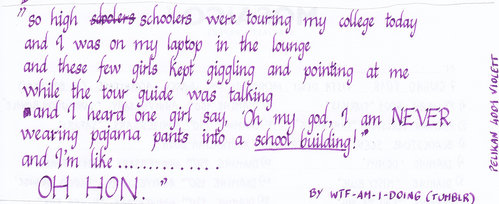 " so high scholers schoolers were touring my college today
and I was on my laptop in the lounge
and these few girls kept giggling and pointing at me
while the tour guide was talking
and I heard one girl say, 'Oh my god, I am NEVER
wearing pajama pants into a school building!'"
and I'm like..............
OH HON. "
BY WTF-AM-I-DOING (TUMBLR)
PELIKAN 4001 VIOLETT